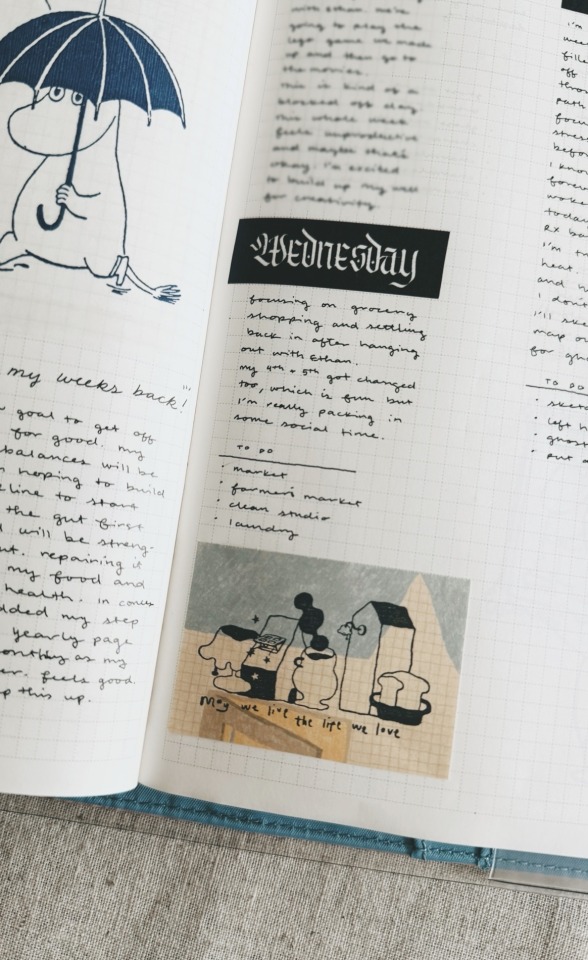 my weeks back!
goal to get off
for good. my
balances will be
hoping to build
line to start
the gut first
will be streng-
repairing it
my food and
health. in
added my step
yearly page
monthly as my
feels good.
up this up.
with Ethan. we're
going to play the
lego game we made
up and then go to
the movies.
This is kind of a
blocked off day.
This whole week
feels unproductive
and maybe that's
okay. I'm excited
to build up my well
for creativity.
WEDNESday
focusing on grocery
shopping and settling
back in after hanging
out with Ethan.
my 4th + 5th got changed
too, which is fun but
I'm really packing in
some social time.
TO DO
· market
· farmer's market
· clean studio
· laundry
May we live the life we love
I'm
wee
fille
off
thro
path
focu
stres
befor
I know
forev
woke
today
Rx ba
I'm tr
heat
and w
I dont
I'll ske
map ou
for gh
TO DO
· sketc
· left h
· ghost
· put a